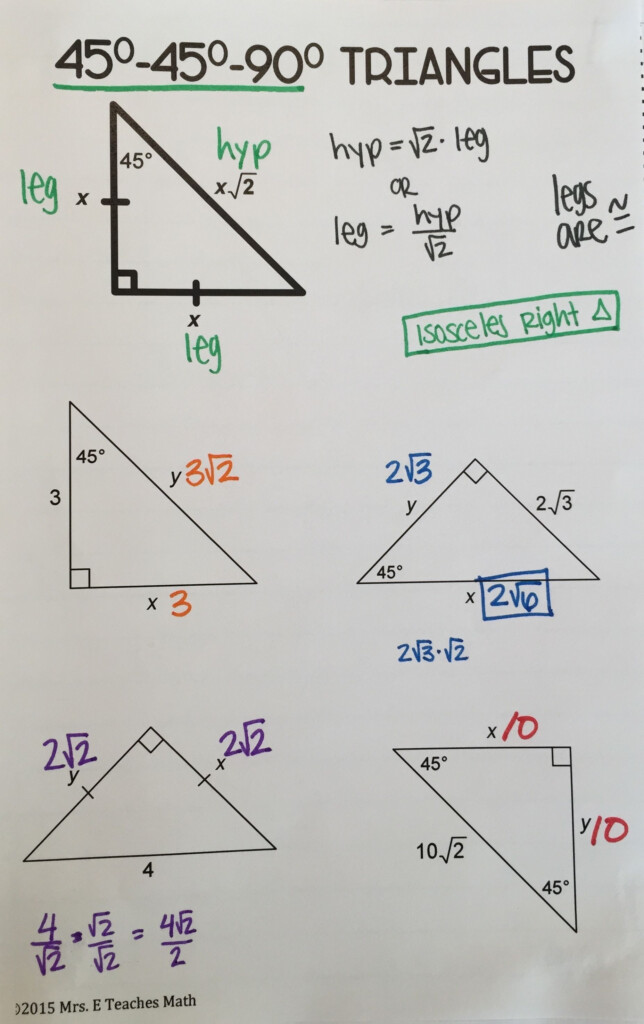 45°-45°-90° TRIANGLES
45°
hyp
x√2
leg
x
x
leg
hyp = √2 · leg
OR
leg = hyp/√2
legs
are ≅
Isosceles Right △
45°
3
y 3√2
x 3
2√3
y
2√3
45°
x 2√6
2√3·√2
2√2
y
2√2
x
4
4/√2 · √2/√2 = 4√2/2
x 10
45°
y 10
10√2
45°
©2015 Mrs. E Teaches Math